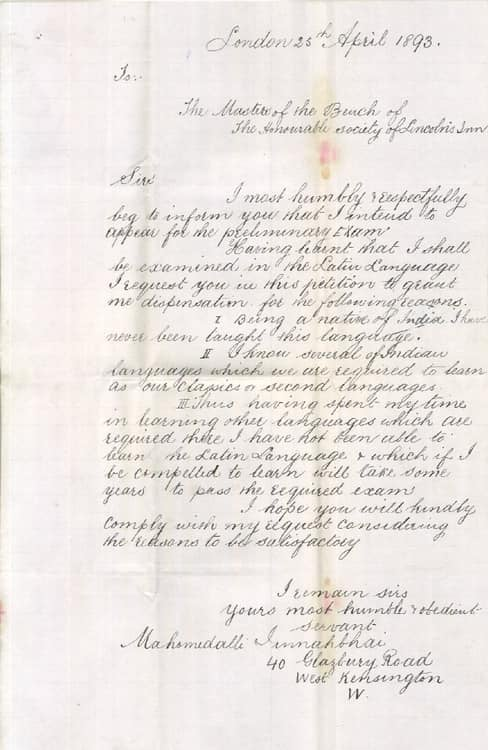 London 25th April 1893.
To:
The Masters of the Bench of
The Honourable society of Lincoln's Inn
Sirs
I most humbly & respectfully
beg to inform you that I intend to
appear for the preliminary Exam
Having learnt that I shall
be examined in the Latin Language
I request you in this petition to grant
me dispensation for the following reasons.
I Being a native of India I have
never been taught this language.
II I know several of Indian
languages which we are required to learn
as our classics or second languages.
III Thus having spent my time
in learning other languages which are
required there I have not been able to
learn the Latin Language & which if I
be compelled to learn will take some
years to pass the required exam
I hope you will kindly
comply with my request considering
the reasons to be satisfactory
I remain sirs
yours most humble & obedient
servant
Mahomedalli Jinnahbhai
40 Glazbury Road
West Kensington
W.